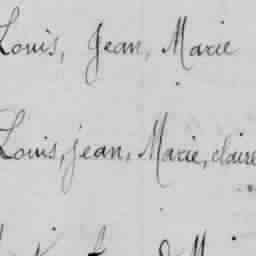 Louis, Jean, Marie
Louis, jean, Marie, claire